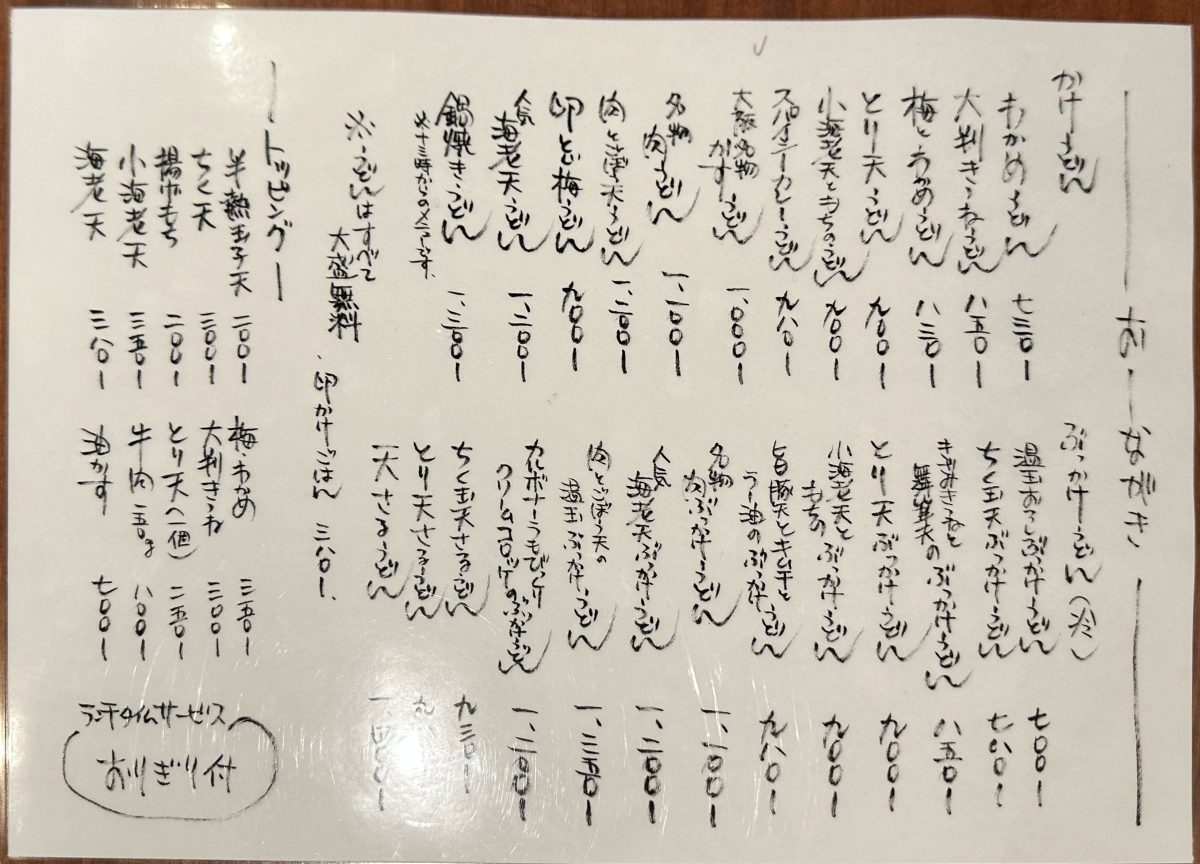 おしながき
かけうどん
わかめうどん 七三〇ー
大判きつねうどん 八五〇ー
梅とわかめうどん 八三〇ー
とり天うどん 九〇〇ー
小海老天ともちのうどん 九〇〇ー
スパイシーカレーうどん 九八〇ー
大阪名物 かすうどん 一、〇〇〇ー
名物 肉うどん 一、一〇〇ー
肉とごぼう天うどん 一、二〇〇ー
卵とじ梅うどん 九〇〇ー
人気 海老天うどん 一、二〇〇ー
鍋焼きうどん 一、三〇〇ー
※十三時からのメニューです。
※うどんはすべて
大盛無料
ぶっかけうどん(冷)
温玉おろしぶっかけうどん 七〇〇ー
ちく玉天ぶっかけうどん 七八〇ー
きざみきつねと
舞茸天のぶっかけうどん 八五〇ー
とり天ぶっかけうどん 九〇〇ー
小海老天と
もちのぶっかけうどん 九〇〇ー
旨豚天とキムチと
ラー油のぶっかけうどん 九八〇ー
名物 肉ぶっかけうどん 一、一〇〇ー
人気 海老天ぶっかけうどん 一、二〇〇ー
肉とごぼう天の
温玉ぶっかけうどん 一、三五〇ー
カルボナーラもびっくり
クリームコロッケのぶっかけうどん 一、二〇〇ー
ちく玉天ざるうどん 九三〇ー
とり天ざるうどん
天ざるうどん
卵かけごはん 三八〇ー
ートッピングー
半熟玉子天 二〇〇ー
ちく天 三〇〇ー
揚げもち 二〇〇ー
小海老天 三五〇ー
海老天 三八〇ー
梅・わかめ 三五〇ー
大判きつね 三〇〇ー
とり天(一個) 二五〇ー
牛肉 五〇g 八〇〇ー
油かす 七〇〇ー
ランチタイムサービス
おにぎり付